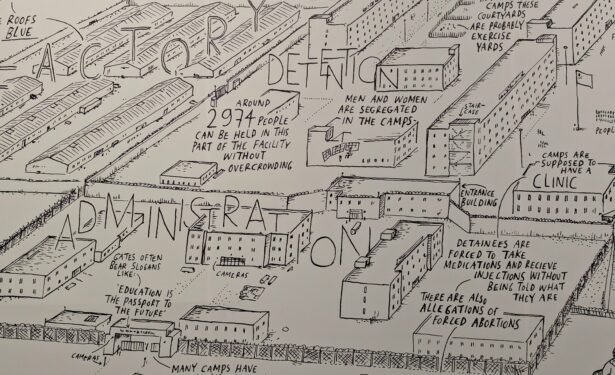 E ROOFS
BLUE
FACTORY
CAMPS THESE
COURTYARDS
ARE PROBABLY
EXERCISE
YARDS
DETENTION
AROUND
2974 PEOPLE
CAN BE HELD IN THIS
PART OF THE FACILITY
WITHOUT
OVERCROWDING
MEN AND WOMEN
ARE SEGREGATED
IN THE CAMPS
STAIR-
CASE
PEOPL
CAMPS ARE
SUPPOSED TO
HAVE A
CLINIC
ENTRANCE
BUILDING
ADMINISTRATION
GATES OFTEN
BEAR SLOGANS
LIKE:
'EDUCATION IS
THE PASSPORT TO
THE FUTURE'
CAMERAS
DETAINEES ARE
FORCED TO TAKE
MEDICATIONS AND RECIEVE
INJECTIONS WITHOUT
BEING TOLD WHAT
THEY ARE
THERE ARE ALSO
ALLEGATIONS OF
FORCED ABORTIONS
CAMERAS
MANY CAMPS HAVE